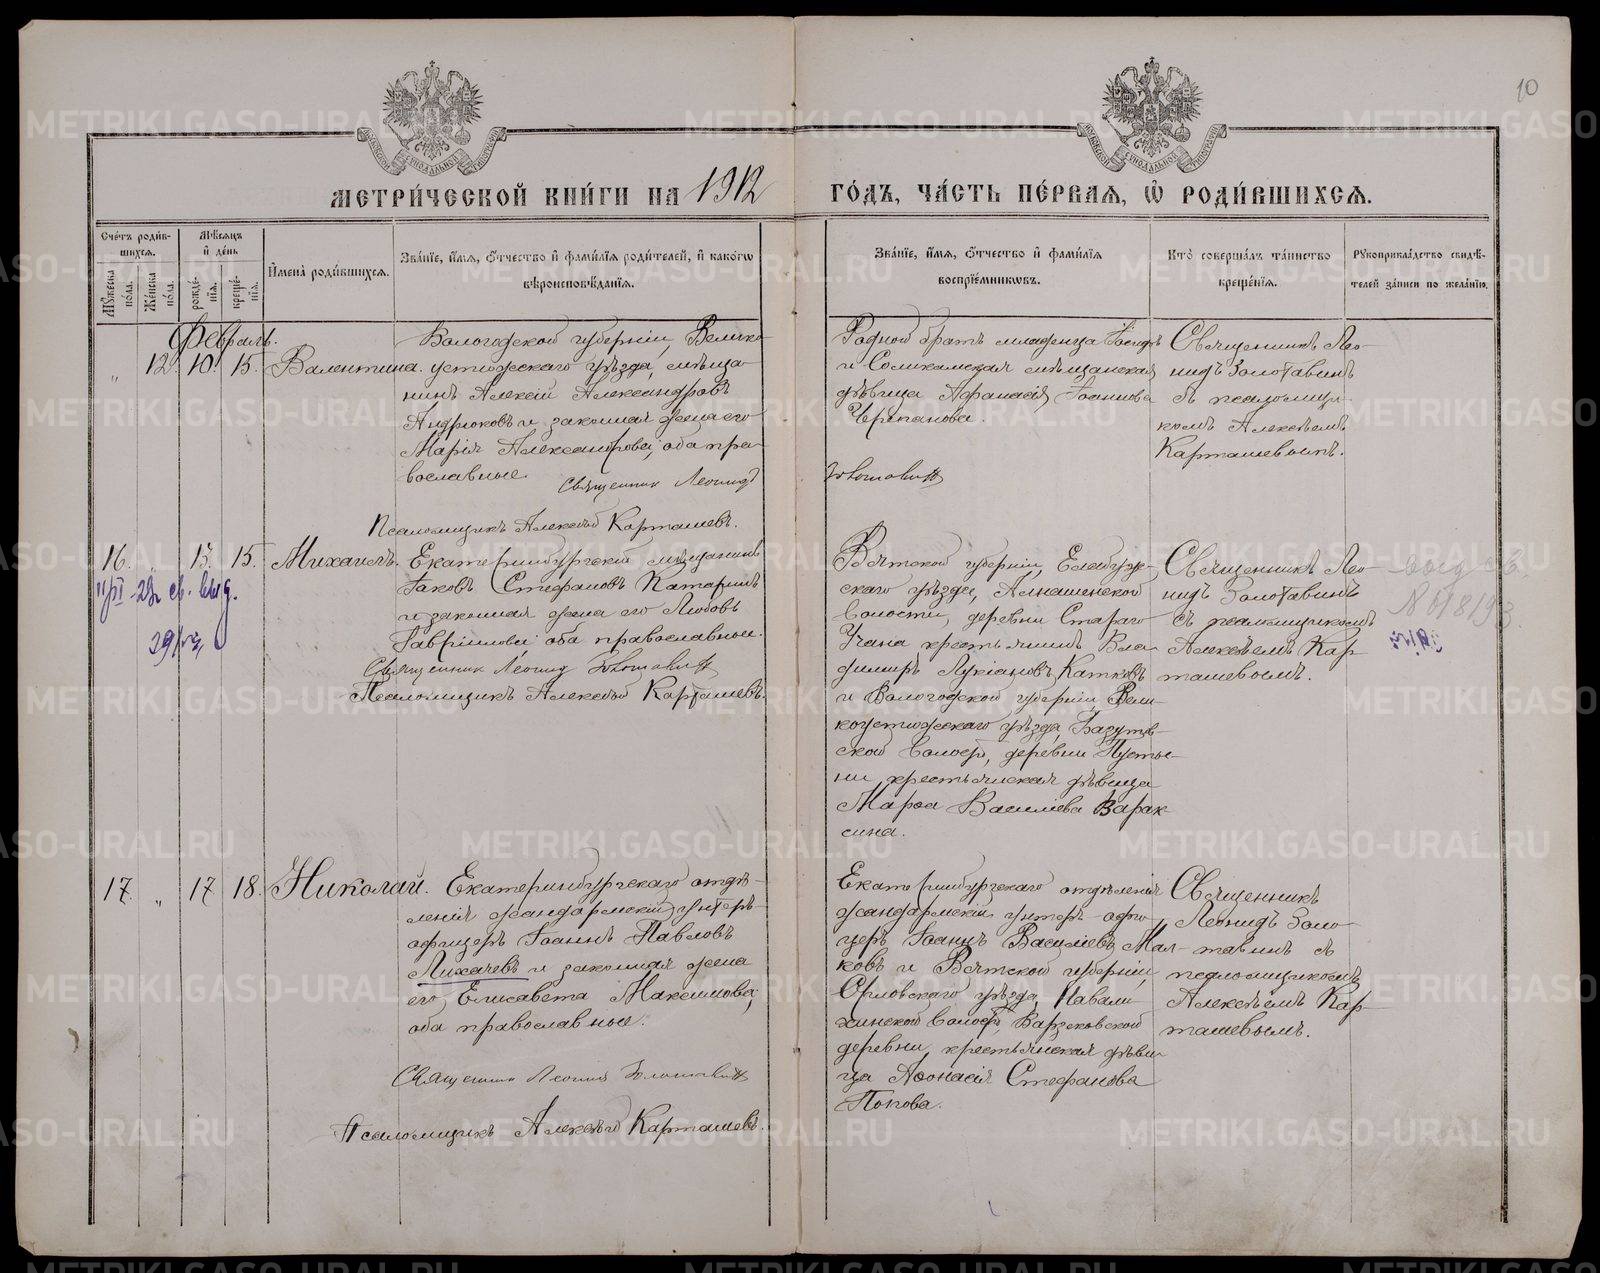 10
МЕТРИ́ЧЕСКОЙ КНИ́ГИ НА 1912 ГО́ДЪ, ЧА́СТЬ ПЕ́РВАЯ, Ѡ҆ РОДИ́ВШИХСЯ.
Сче́тъ роди́в-
шихся.
Му́жеска по́ла.
Же́нска по́ла.
Мѣ́сяцъ и҆ де́нь
рожде́-
нїѧ.
креще́-
нїѧ.
И҆мена̀ роди́вшихся.
Зва́нїе, и҆́мя, ѻ҆́тчество и҆ фами́лїя роди́телей, и҆ како́гѡ
вѣроисповѣ́данїя.
Зва́нїе, и҆́мя, ѻ҆́тчество и҆ фами́лїя
воспрїе́мникѡвъ.
Кто̀ соверша́лъ та́инство
креще́нїя.
Рꙋкоприкла́дство свидѣ́-
телей за́писи по жела́нїю.
Февраль.
" 12. 10. 15. Валентина.
Вологодской губерніи, Велико-
устюжскаго уѣзда, мѣща-
нинъ Алексій Александровъ
Андрюковъ и законная жена его
Марія Александрова, оба пра-
вославные.
Священник Леонид
Золотавин
Псаломщикъ Алексѣй Карташевъ.
Родной братъ младенца Іосифъ
и Соликамская мѣщанская
дѣвица Афанасія Іоаннова
Черепанова.
Священникъ Лео-
нидъ Золотавинъ
съ псаломщи-
комъ Алексѣемъ
Карташевымъ.
16. 13. 15. Михаилъ.
Екатеринбургскій мѣщанинъ
Іаковъ Стефановъ Катаринъ
и законная жена его Любовь
Гавріилова: оба православные.
Священник Леонид Золотавин
Псаломщикъ Алексѣй Карташевъ.
св. выд.
Вятской губерніи, Елабуж-
скаго уѣзда, Алнашенской
волости, деревни Стараго
Учана крестьянинъ Вла-
димиръ Лукіановъ Катковъ
и Вологодской губерніи, Вели-
коустюжскаго уѣзда,
ской волости, деревни Пусты-
ни крестьянская дѣвица
Марѳа Василіева Варак-
сина.
Священникъ Лео-
нидъ Золотавинъ
съ псаломщикомъ
Алексѣемъ Кар-
ташевымъ.
17. " 17 18. Николай.
Екатеринбургскаго отдѣ-
ленія жандармскій унтеръ-
офицеръ Іоаннъ Павловъ
Лихачевъ и законная жена
его Елисавета Максимова;
оба православные.
Священник Леонид Золотавин
Псаломщикъ Алексѣй Карташевъ.
Екатеринбургскаго отдѣленія
жандармскій унтеръ-офи-
церъ Іоаннъ Василіевъ Мал-
ковъ и Вятской губерніи,
Орловскаго уѣзда,
волости,
деревни крестьянская дѣви-
ца Аѳонасія Стефанова
Попова.
Священникъ
Леонидъ Золо-
тавинъ съ
псаломщикомъ
Алексѣемъ Кар-
ташевымъ.
METRIKI.GASO-URAL.RU